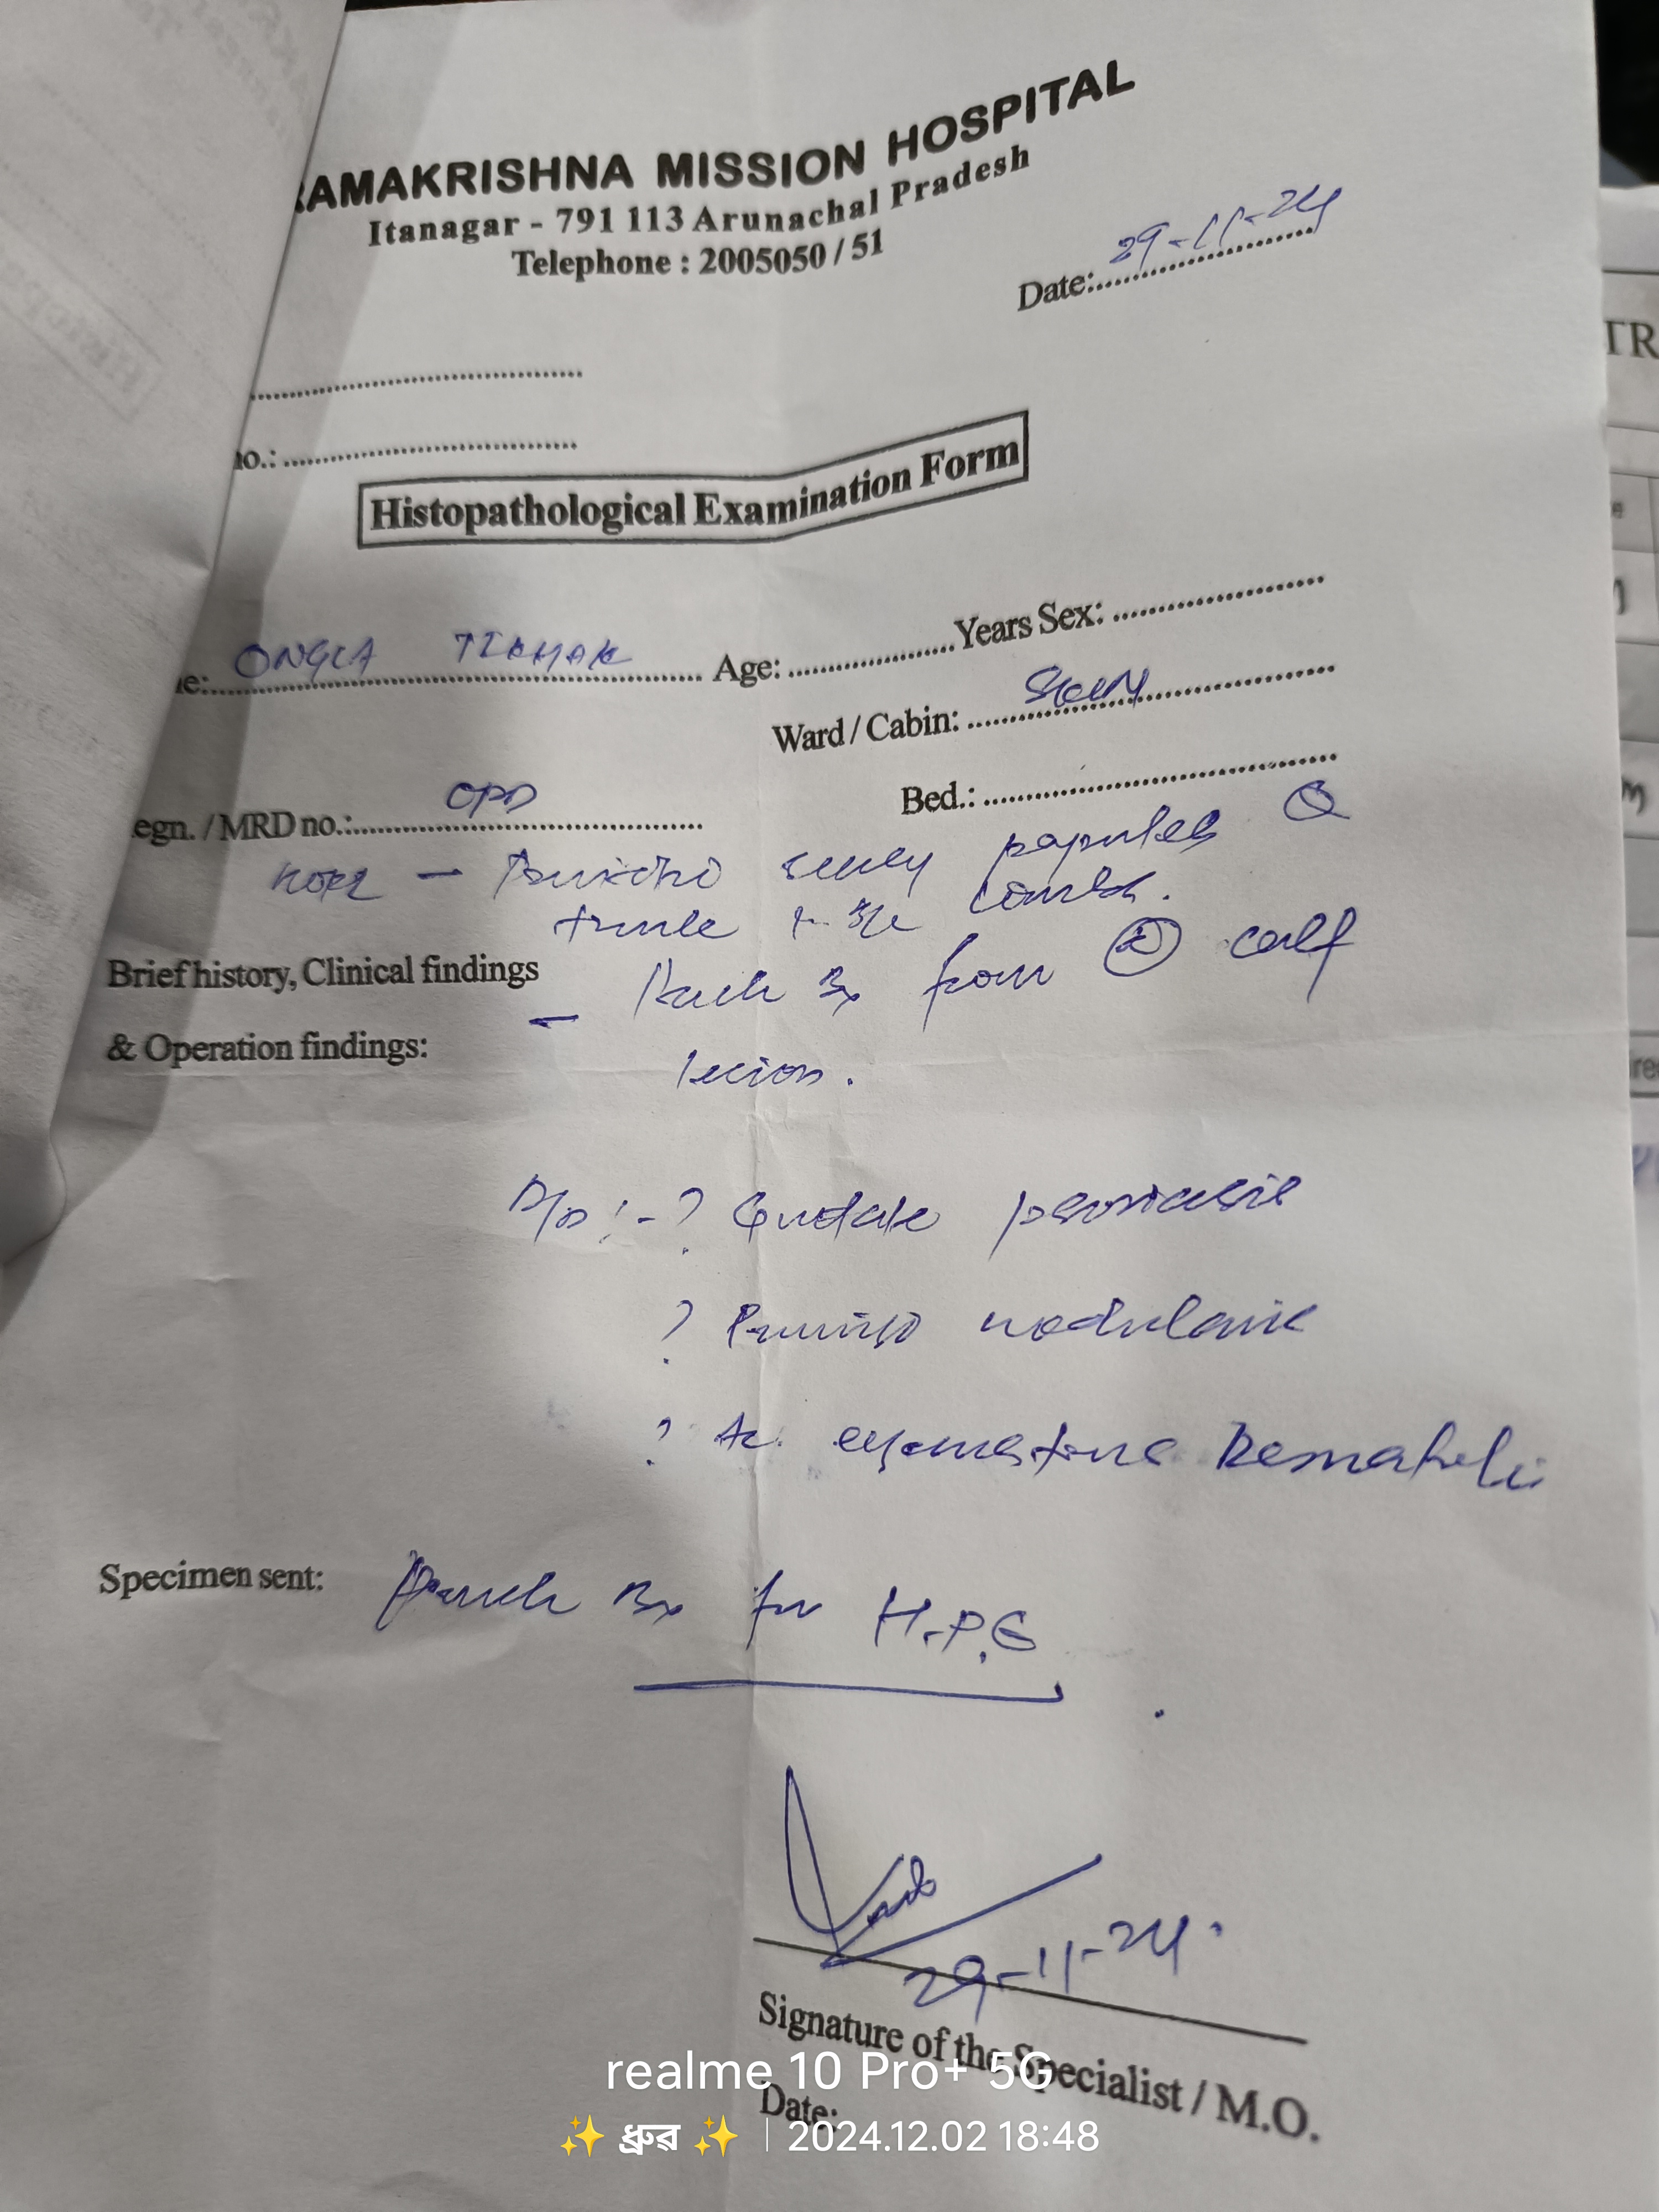 RAMAKRISHNA MISSION HOSPITAL
Itanagar - 791 113 Arunachal Pradesh
Telephone : 2005050 / 51
Date: 29-11-24
no.:
Histopathological Examination Form
e: ONGLA Age: Years Sex:
Ward / Cabin: SKIN
egn. / MRD no.: OPD Bed.:
papules
Brief history, Clinical findings
Punch Bx from calf
& Operation findings:
lesion.
D/D :- ? Guttate psoriasis
? Prurigo nodularis
? Ac. eczematous Dermatitis
Specimen sent: Punch Bx for H.P.E
29-11-24
Signature of the Specialist / M.O.
Date:
realme 10 Pro+ 5G
✨ ধ্ৰুৱ ✨ | 2024.12.02 18:48